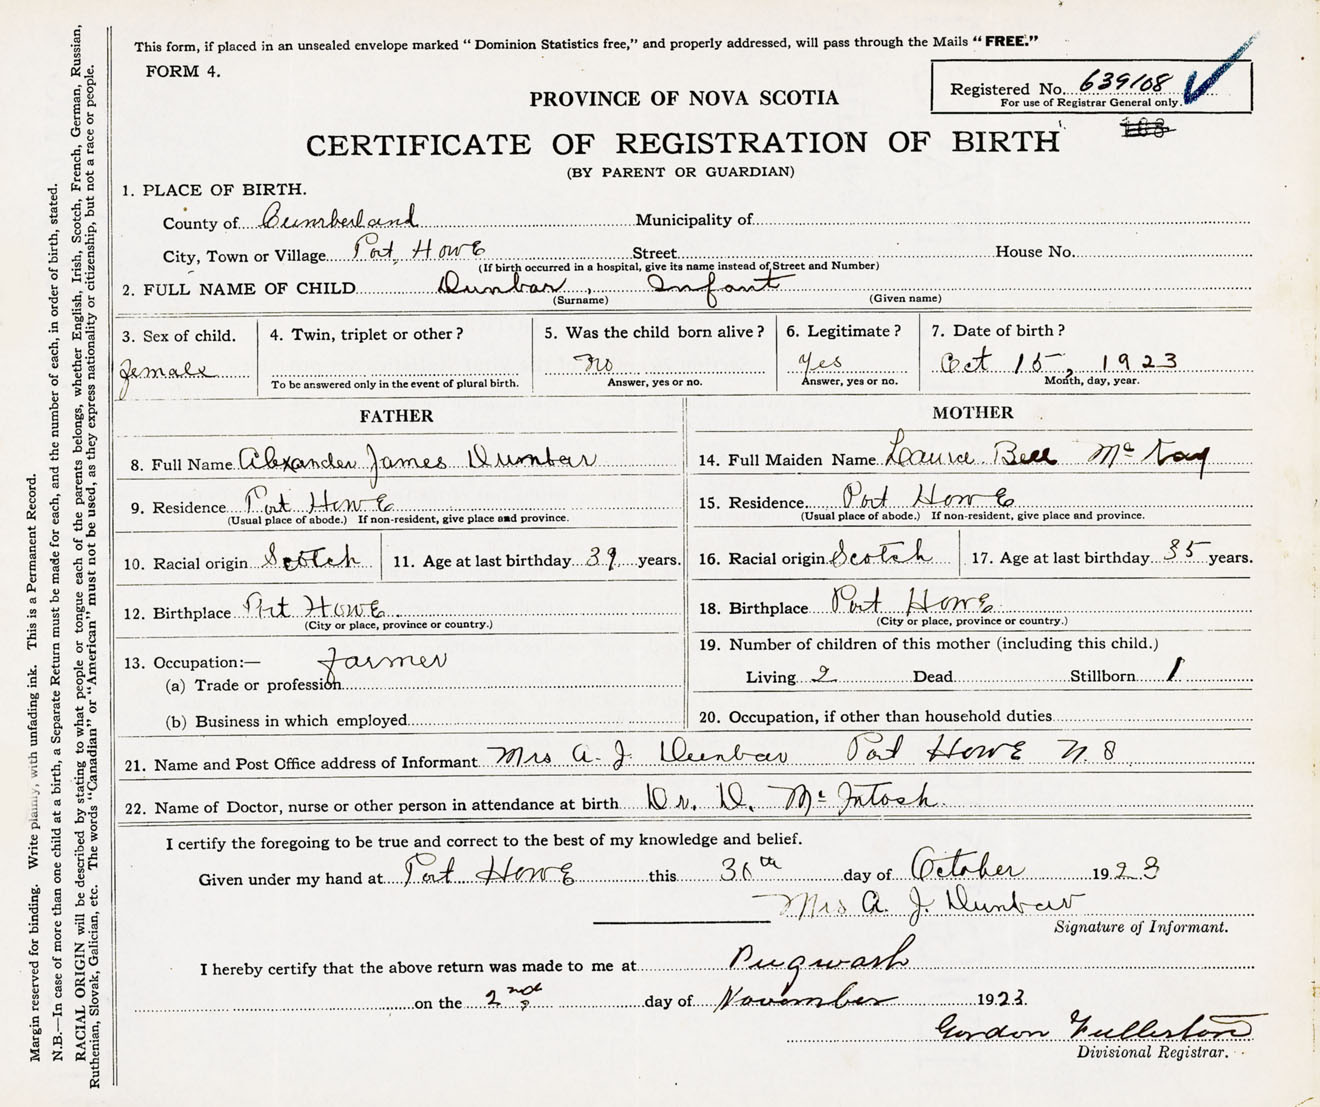 This form, if placed in an unsealed envelope marked “ Dominion Statistics free,” and properly addressed, will pass through the Mails “ FREE.”
FORM 4.
Registered No. 639108
For use of Registrar General only.
PROVINCE OF NOVA SCOTIA
CERTIFICATE OF REGISTRATION OF BIRTH
(BY PARENT OR GUARDIAN)
1. PLACE OF BIRTH.
County of Cumberland Municipality of
City, Town or Village Port Howe Street House No.
(If birth occurred in a hospital, give its name instead of Street and Number)
2. FULL NAME OF CHILD Dunbar, Infant
(Surname) (Given name)
3. Sex of child. 4. Twin, triplet or other ? 5. Was the child born alive ? 6. Legitimate ? 7. Date of birth ?
Female No Yes Oct 15, 1923
To be answered only in the event of plural birth. Answer, yes or no. Answer, yes or no. Month, day, year.
FATHER
8. Full Name Alexander James Dunbar
9. Residence Port Howe
(Usual place of abode.) If non-resident, give place and province.
10. Racial origin Scotch 11. Age at last birthday 39 years.
12. Birthplace Port Howe
(City or place, province or country.)
13. Occupation:— Farmer
(a) Trade or profession
(b) Business in which employed
MOTHER
14. Full Maiden Name Bell
15. Residence Port Howe
(Usual place of abode.) If non-resident, give place and province.
16. Racial origin Scotch 17. Age at last birthday 35 years.
18. Birthplace Port Howe
(City or place, province or country.)
19. Number of children of this mother (including this child.)
Living 2 Dead Stillborn 1
20. Occupation, if other than household duties
21. Name and Post Office address of Informant Mrs A. J. Dunbar Port Howe N. S
22. Name of Doctor, nurse or other person in attendance at birth Dr. D. McIntosh.
I certify the foregoing to be true and correct to the best of my knowledge and belief.
Given under my hand at Port Howe this 30th day of October 1923
Mrs A. J. Dunbar
Signature of Informant.
I hereby certify that the above return was made to me at Pugwash
on the 2nd day of November 1923.
Gordon Fullerton
Divisional Registrar.
Margin reserved for binding. Write plainly, with unfading ink. This is a Permanent Record.
N.B.—In case of more than one child at a birth, a Separate Return must be made for each, and the number of each, in order of birth, stated.
RACIAL ORIGIN will be described by stating to what people or tongue each of the parents belongs, whether English, Irish, Scotch, French, German, Russian,
Ruthenian, Slovak, Galician, etc. The words “Canadian” or “American” must not be used, as they express nationality or citizenship, but not a race or people.